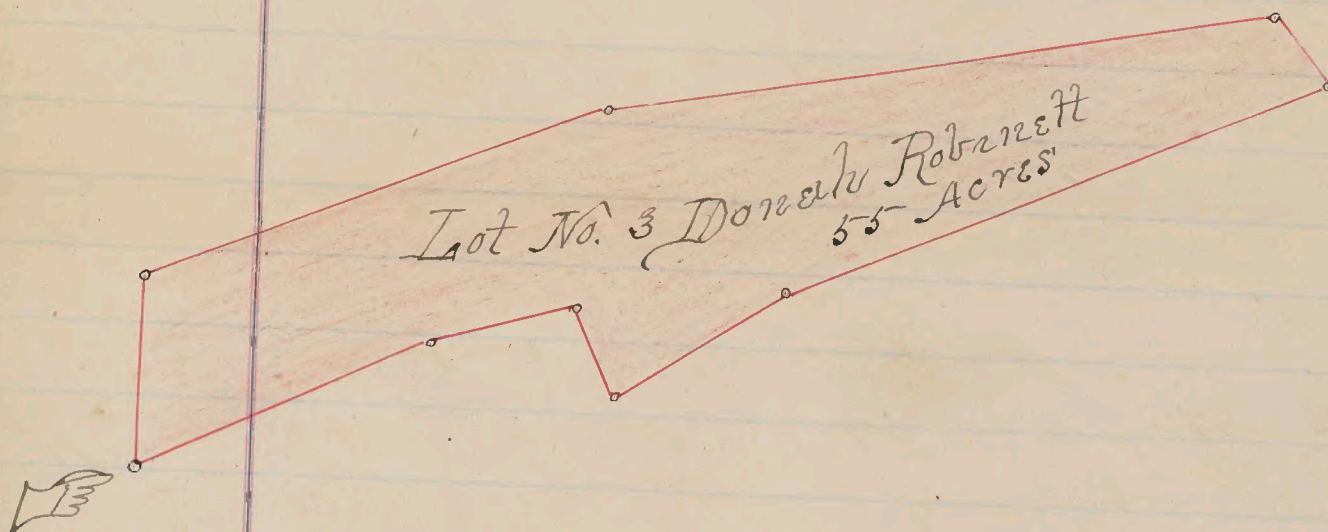 Lot No. 3 Robinett
55 Acres